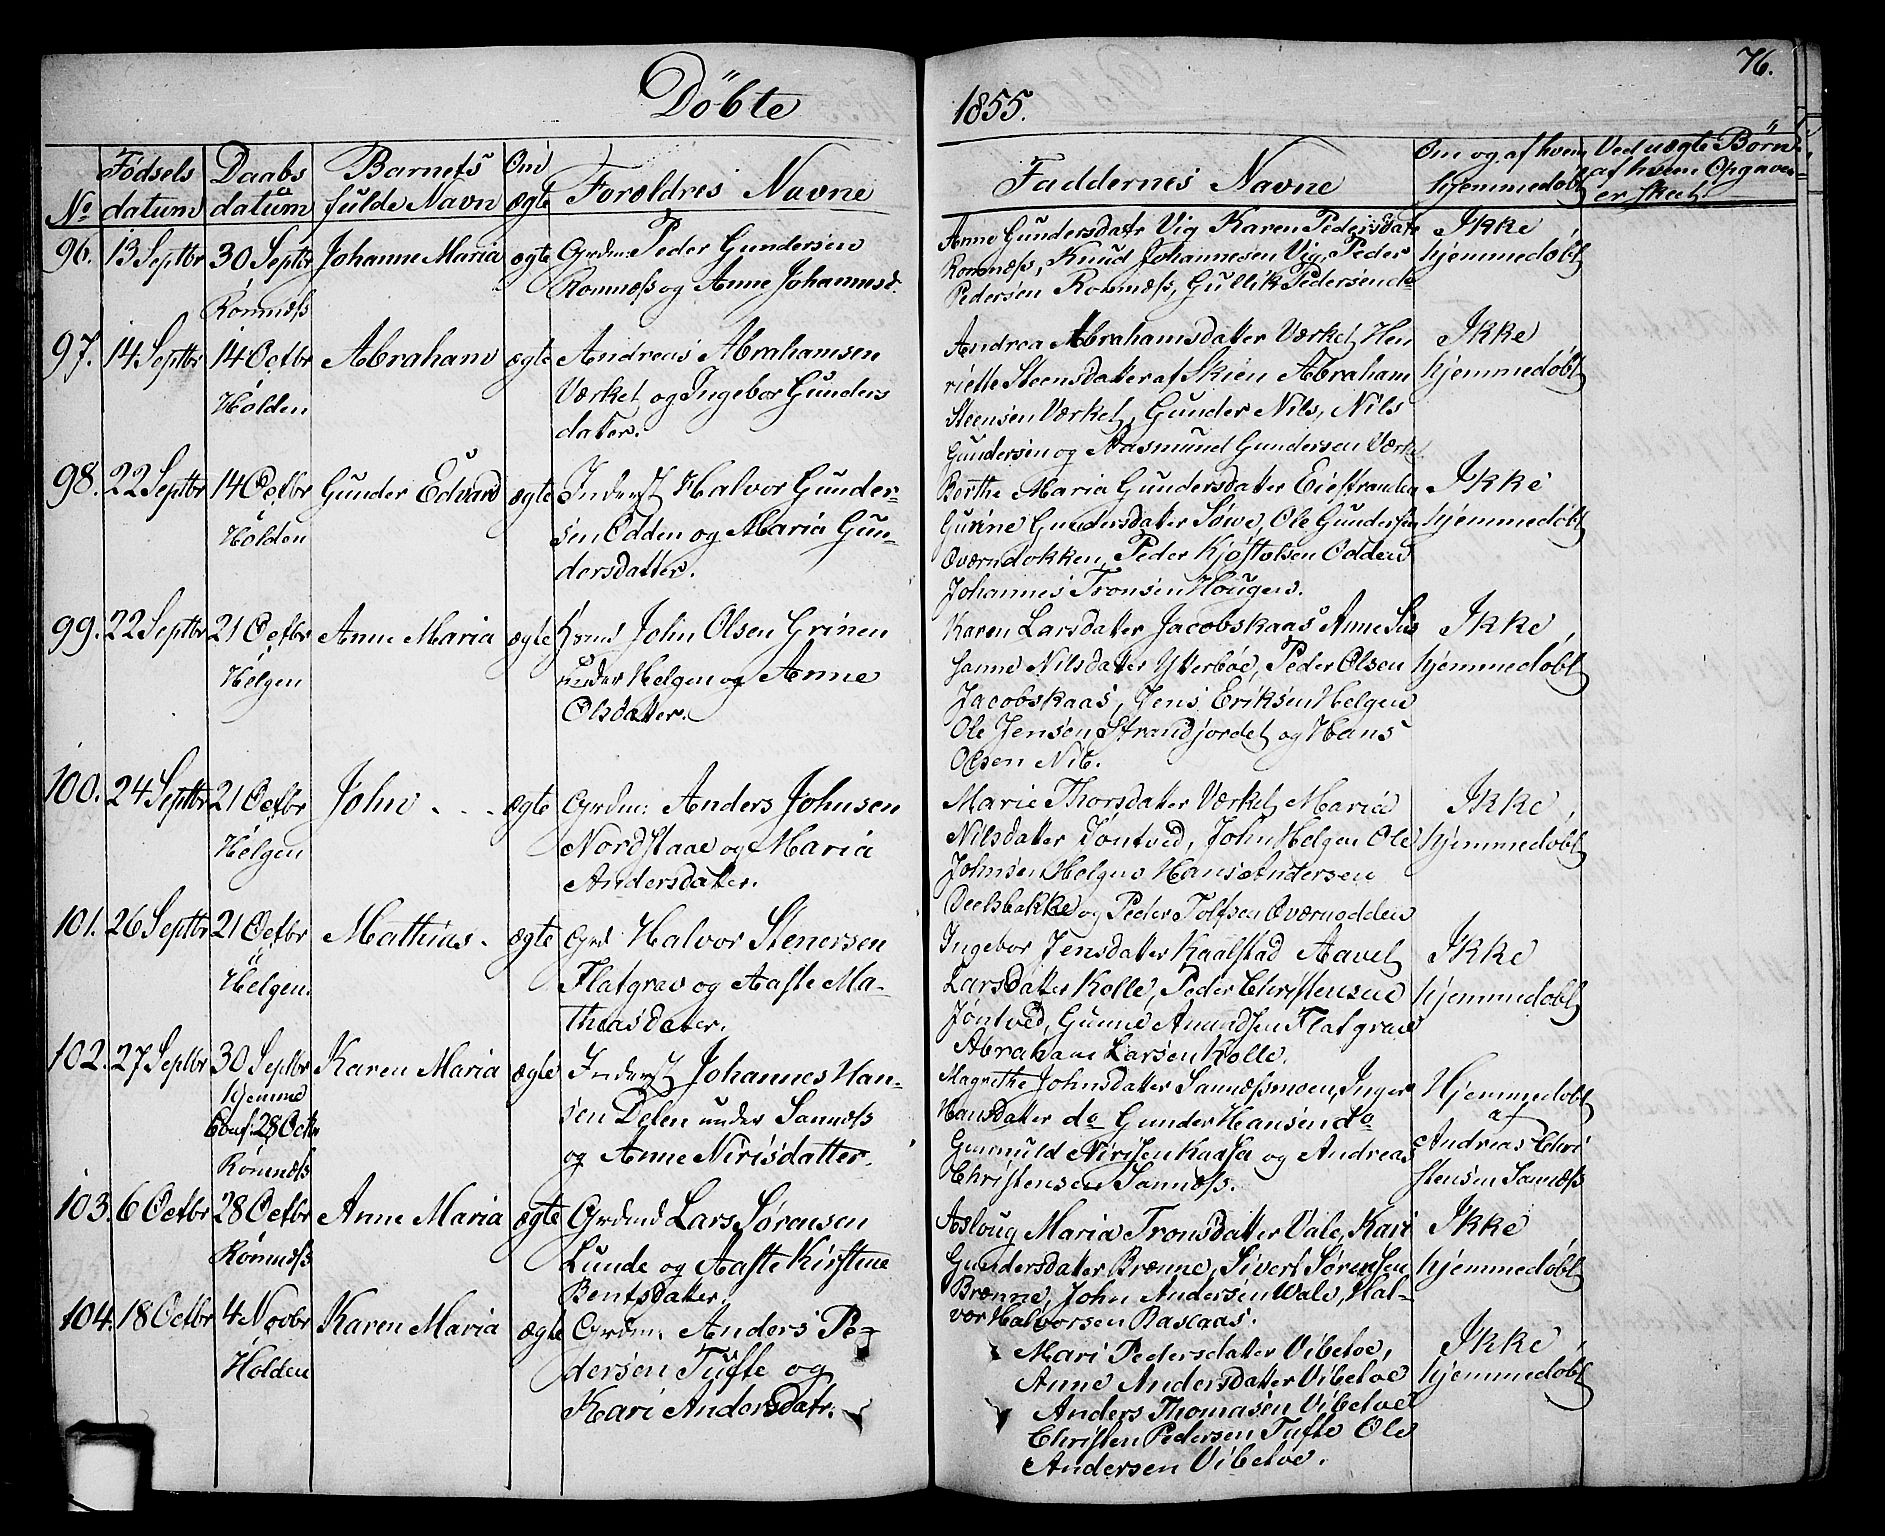 Döbte
1855.
76.
No
Fødsels datum
Daabs datum
Barnets fulde Navn
Om ægte
Forældres Navne
Faddernes Navne
Om og af hvem hjemmedøbt
Ved uægte Börn af hvem Opgaven er skeet.
96. 13 Septbr 30 Septbr Johanne Maria ægte Grdm: Peder Gundersen
Romnæss og Anne Johannesd.
Römnæss
Anne Gundersdatr Vig Karen Pedersdatr
Romnæss, Knud Johannesen Vig, Peder
Pedersen Romnæss, Gullik Pedersen do
Ikke
hjemmedøbt
97. 14 Septbr 14 Octbr Abraham ægte Andreas Abrahamsen
Holden
Værket og Ingebor Gunders
datter.
Andrea Abrahamsdatter Værket, Hen
riette Steensdatter af Skien Abraham
Steensen Værket, Gunder Nils, Nils
Gundersen og Aasmund Gundersen Værket
Ikke
hjemmedøbt
98. 22 Septbr 14 Octbr Gunder Edvard ægte Inderst Halvor Gunder-
Holden
sen Odden og Maria Gun-
dersdatter.
Berthe Maria Gundersdatter Eiestranden
Gurine Gundersdatter Søve, Ole Gundersen
Qværndokken, Peder Kjøstolsen Odden
Johannes Tronsen Hougen.
Ikke
hjemmedøbt
99. 22 Septbr 21 Octbr Anne Maria ægte Hmd John Olsen Grinen
Helgen
under Helgen og Anne
Olsdatter.
Karen Larsdatter Jacobskaas Anne Su
sanne Nilsdatter Ytterböe, Peder Olsen
Jacobskaas, Jens Eriksen Helgen
Ole Jensen Strandjordet og Hans
Olsen Nib.
Ikke
hjemmedøbt
100. 24 Septbr 21 Octbr John ægte Grdm: Anders Johnsen
Helgen
Nordstaae og Maria
Andersdatter.
Marie Thorsdatter Værket, Maria
Nilsdatter Jöntved, John Helgen Ole
Johnsen Helgen Hans Andersen
Deelsbakke og Peder Tolfsen Qværnodden
Ikke
hjemmedøbt
101. 26 Septbr 21 Octbr Mathias ægte Grd Halvor Stenersen
Helgen.
Flatgrav og Aaste Ma-
thiasdatter.
Ingebor Jensdatter Kaalstad Aavet
Larsdatter Kolle, Peder Christensen
Jöntved, Gunne Amundsen Flatgrav
Abraham Larsen Kolle.
Ikke
hjemmedøbt
102. 27 Septbr 30 Septbr Karen Maria ægte Inderst Johannes Han-
hjemme
Conf: 28 Octbr
Römnæss
sen Delen under Sannæss
og Anne Nirisdatter.
Magrethe Johnsdatter Sannæssmoen, Inger
Hansdatter do Gunder Hansen do
Gunnuld Nirisen Kaasa og Andreas
Christensen Sannæss.
Hjemmedøbt
af
Andreas Chri
stensen Sannæss
103. 6 Octbr 28 Octbr Anne Maria ægte Grdmd Lars Sørensen
Römnæss
Lunde og Aaste Kirstine
Bentsdatter.
Asloug Maria Tronsdatter Vale, Kari
Gundersdatter Brænne, Sivert Sørensen
Brænne, John Andersen Wale, Hal-
vor Halvorsen Rascaas.
Ikke
hjemmedøbt
104. 18 Octbr 4 Novbr Karen Maria ægte Grdm: Anders Pe-
Holden
dersen Tufte og
Kari Andersdatr.
Mari Pedersdatter Vibetoe,
Anne Andersdatter Vibetoe
Anders Thomasen Vibetoe
Christen Pedersen Tufte Ole
Andersen Vibetoe.
Ikke
hjemmedøbt